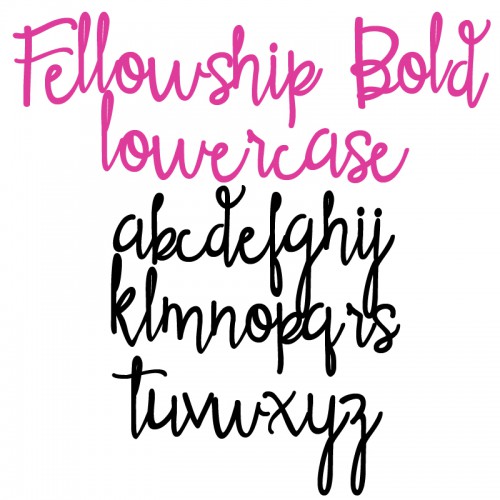 Fellowship Bold
lowercase
abcdefghij
klmnopqrs
tuvwxyz